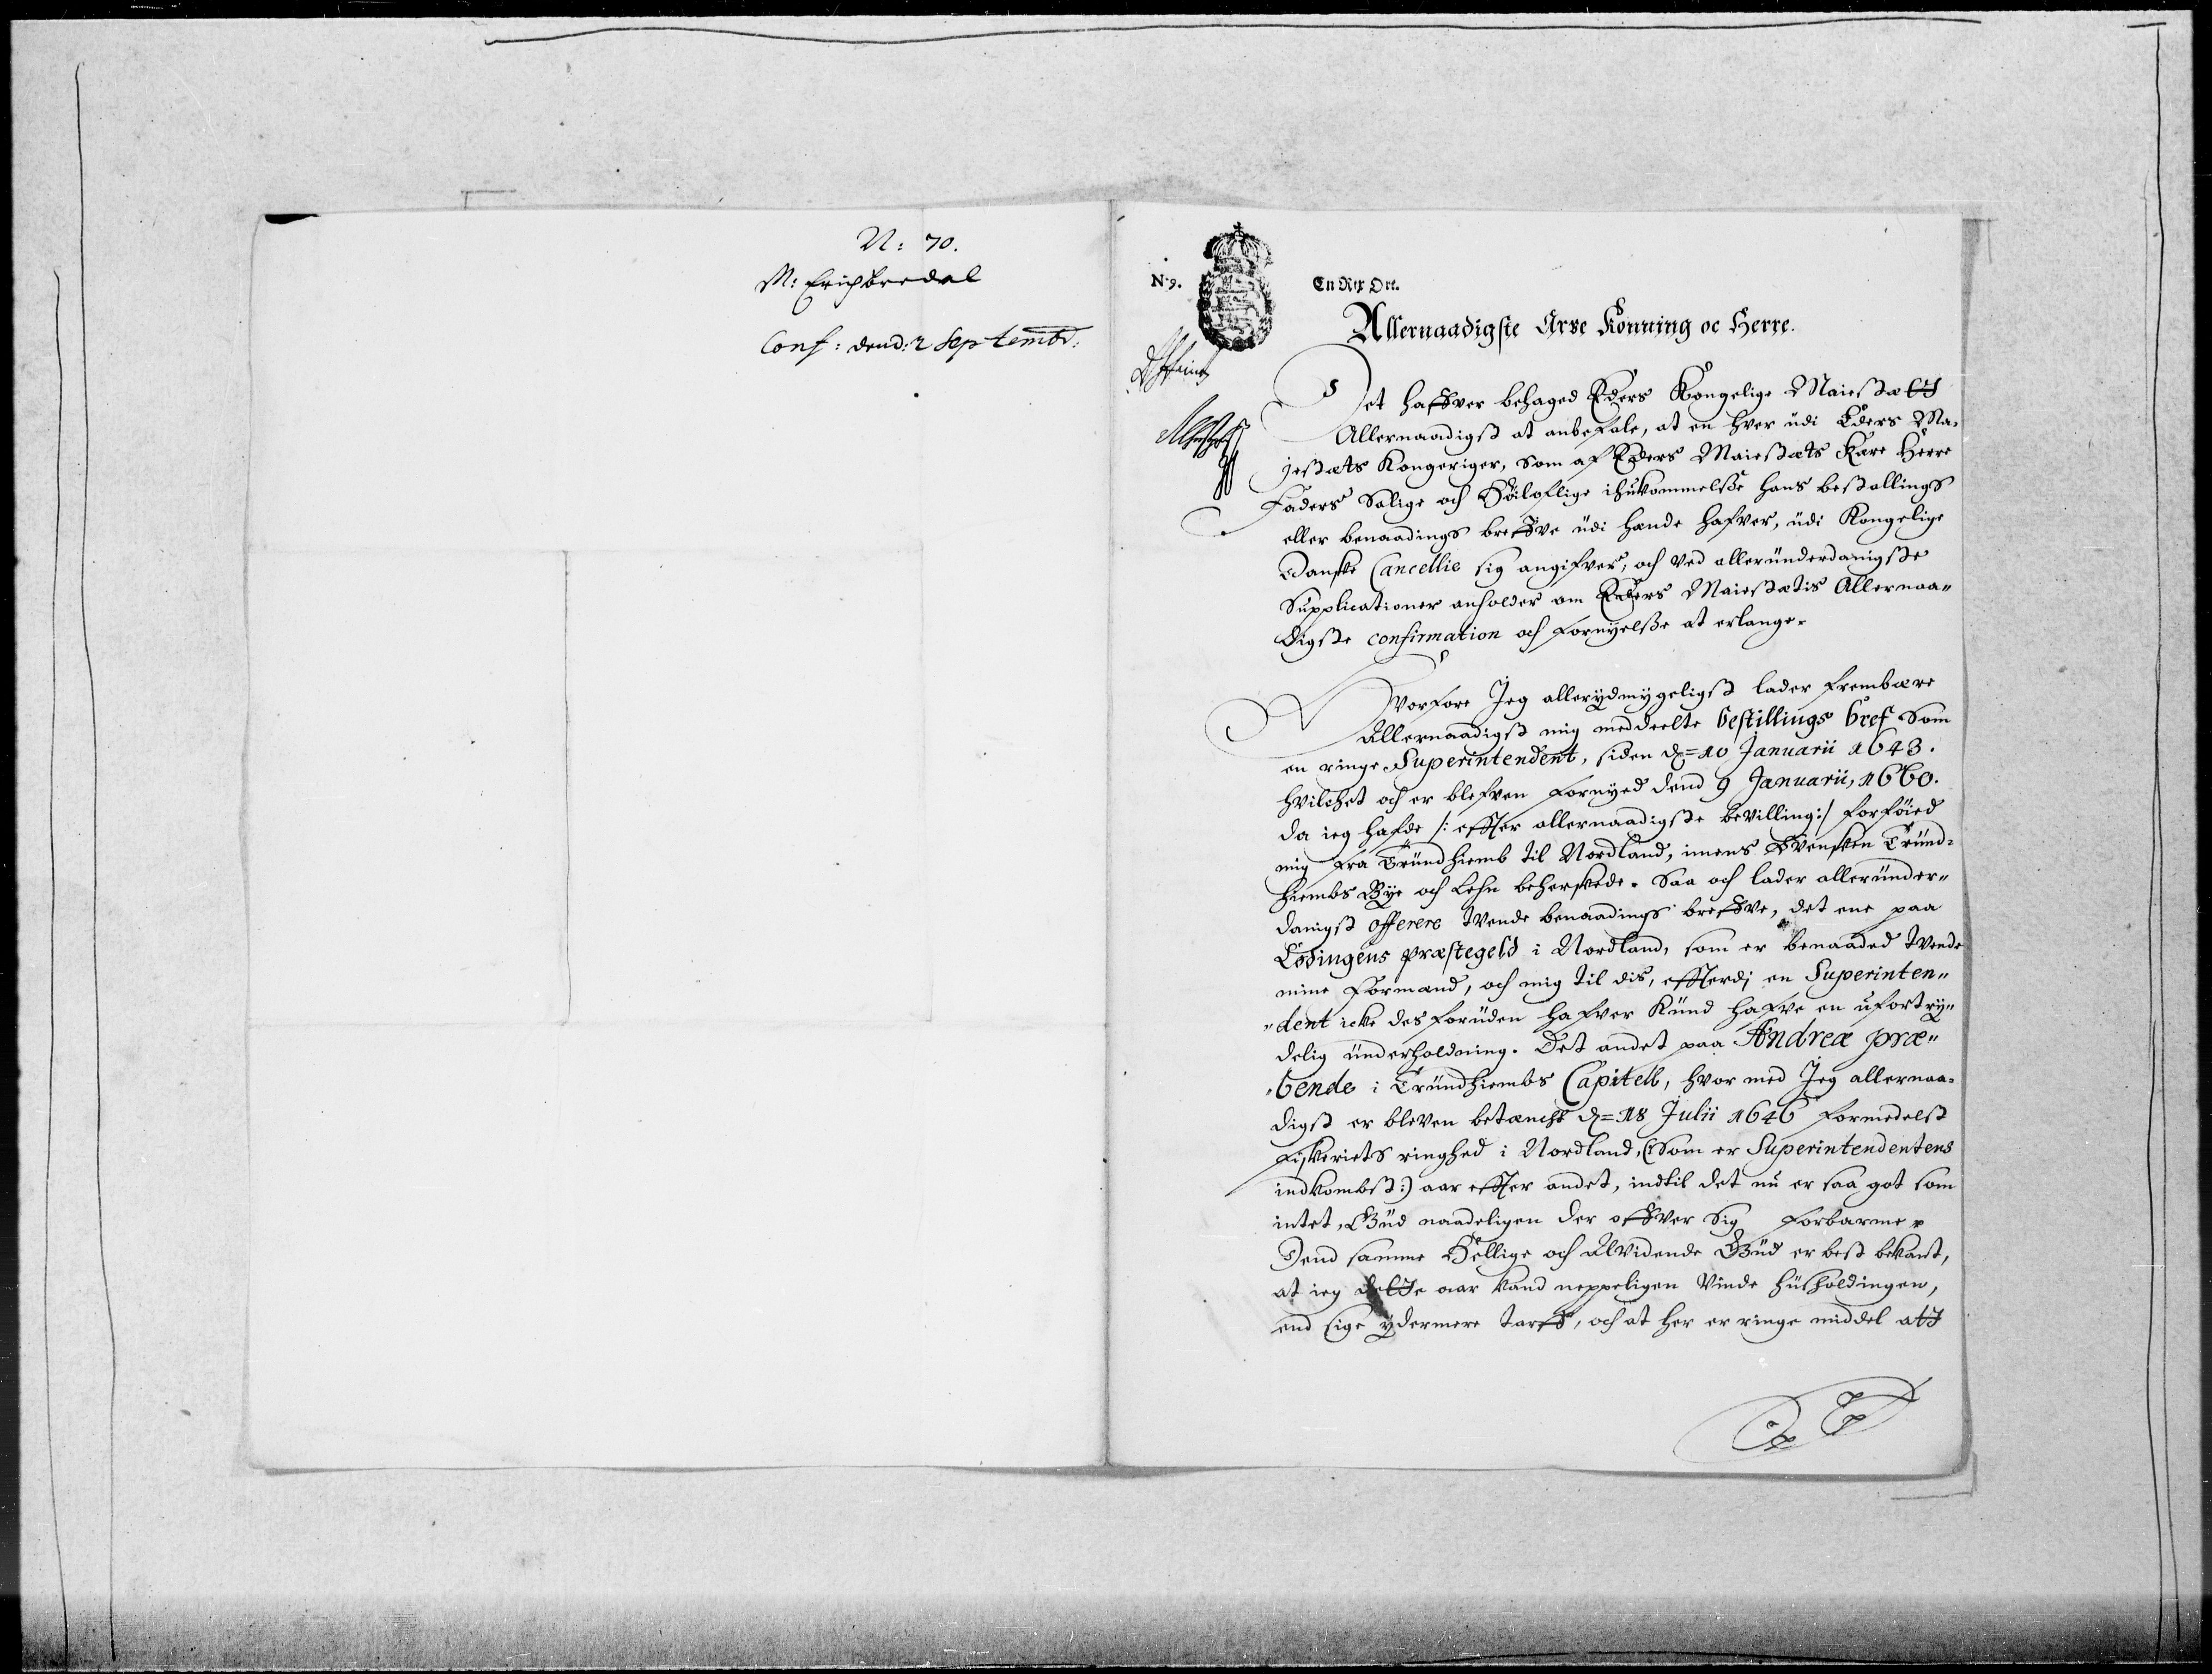 N: 70.
M: Erich bredal
Conf: dend: 2 Septembr:
Nº 9.
En Rix Ort.
Allernaadigste Arve Konning oc Herre.
Det haffver behaged Eders Kongelige Maiestætt
Allernaadigst at anbefale, at en hver udi Eders Ma-
jestæts Kongeriger, som af Eders Maiestæts Kære Herre
Faders Salige och Höiloflige ihukommelsse hans bestallings
eller benaadings breffve udi hænde hafver, udi Kongelige
Danske Cancellie sig angifver, och ved allerunderdanigste
Supplicationer anholder om Eders Maiestætis Allernaa-
digste confirmation och fornyelsse at erlange.
Hvorfore Jeg allerydmygeligst lader frembære
Allernaadigst mig meddeelte bestillings bref som
en ringe Superintendent, siden d= 10 Januarii 1643.
hvilchet och er blefven fornyed dend 9 Januarii, 1660.
da ieg hafde /: effter allernaadigste bevilling :/ forföied
mig fra Trundhiemb til Nordland, imens Svensken Trund-
hiembs Bye och Lehn beherskede. Saa och lader allerunder-
danigst offerere tvende benaadings breffve, det ene paa
Lödingens præstegeld i Nordland, som er benaaded tvende
mine Formænd, och mig til dis, effterdi en Superinten-
dent icke des foruden hafver kund hafve en ufortry-
delig underholdning. Det andet paa Andreæ præ-
bende i Trundhiembs Capitell, hvor med Jeg allernaa-
digst er bleven betæncht d= 18 Julii 1646 formedelst
Fiskeriets ringhed i Nordland, (: som er Superintendentens
indkombst :) aar effter andet, indtil det nu er saa got som
intet, Gud naadeligen der offver sig forbarme.
Dend samme Hellige och Alvidende Gud er best bekant,
at ieg dette aar kand neppeligen vinde husholdingen,
end sige ydermere tarff, och at her er ringe middel att